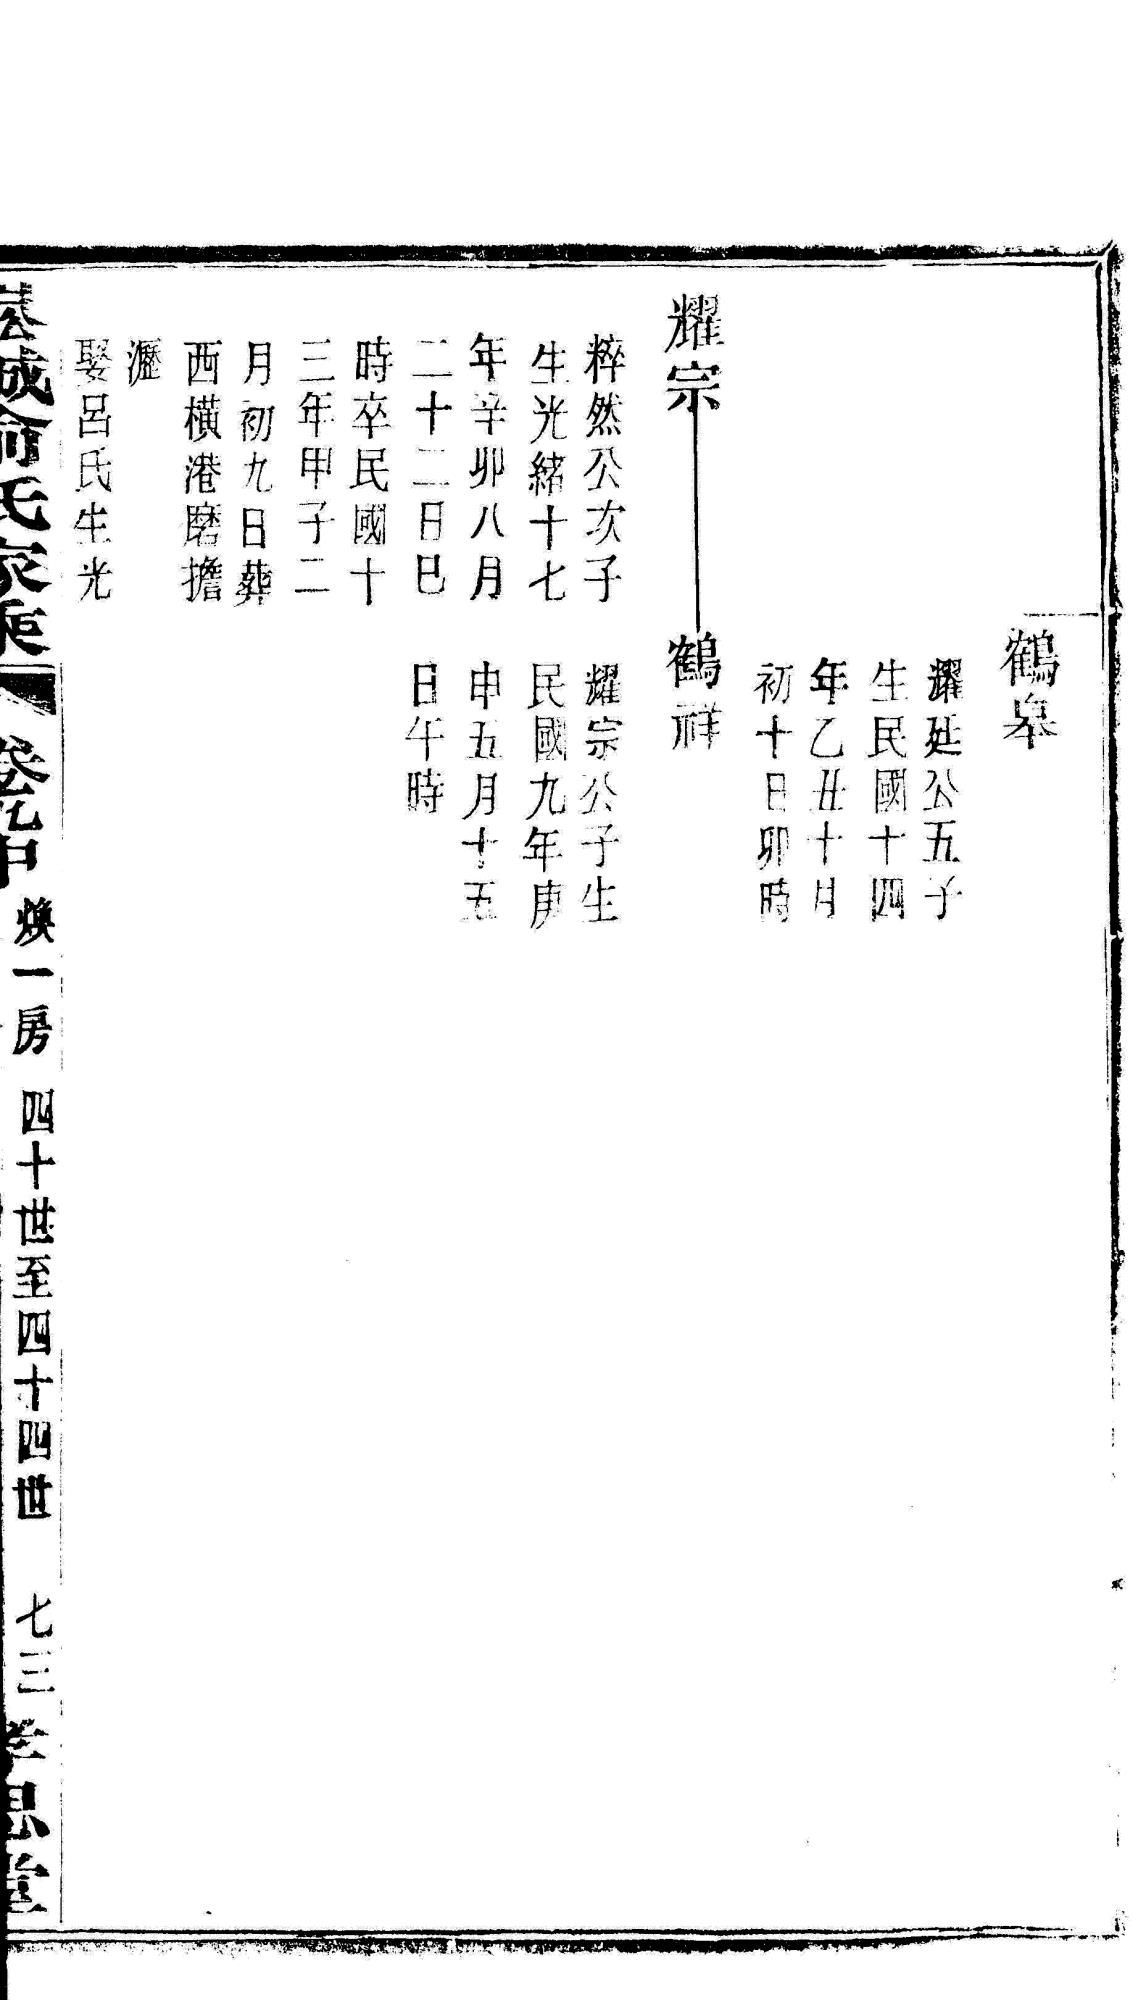 鶴皋
耀延公五子
生民國十四
年乙丑十月
初十日卯時
耀宗
鶴祥
粹然公次子
生光緒十七
年辛卯八月
二十二日巳
時卒民國十
三年甲子二
月初九日葬
西橫港磨擔
瀝
娶呂氏生光
耀宗公子生
民國九年庚
申五月十五
日午時
城俞氏家乘
卷九中
煥一房
四十世至四十四世
七三
孝思堂